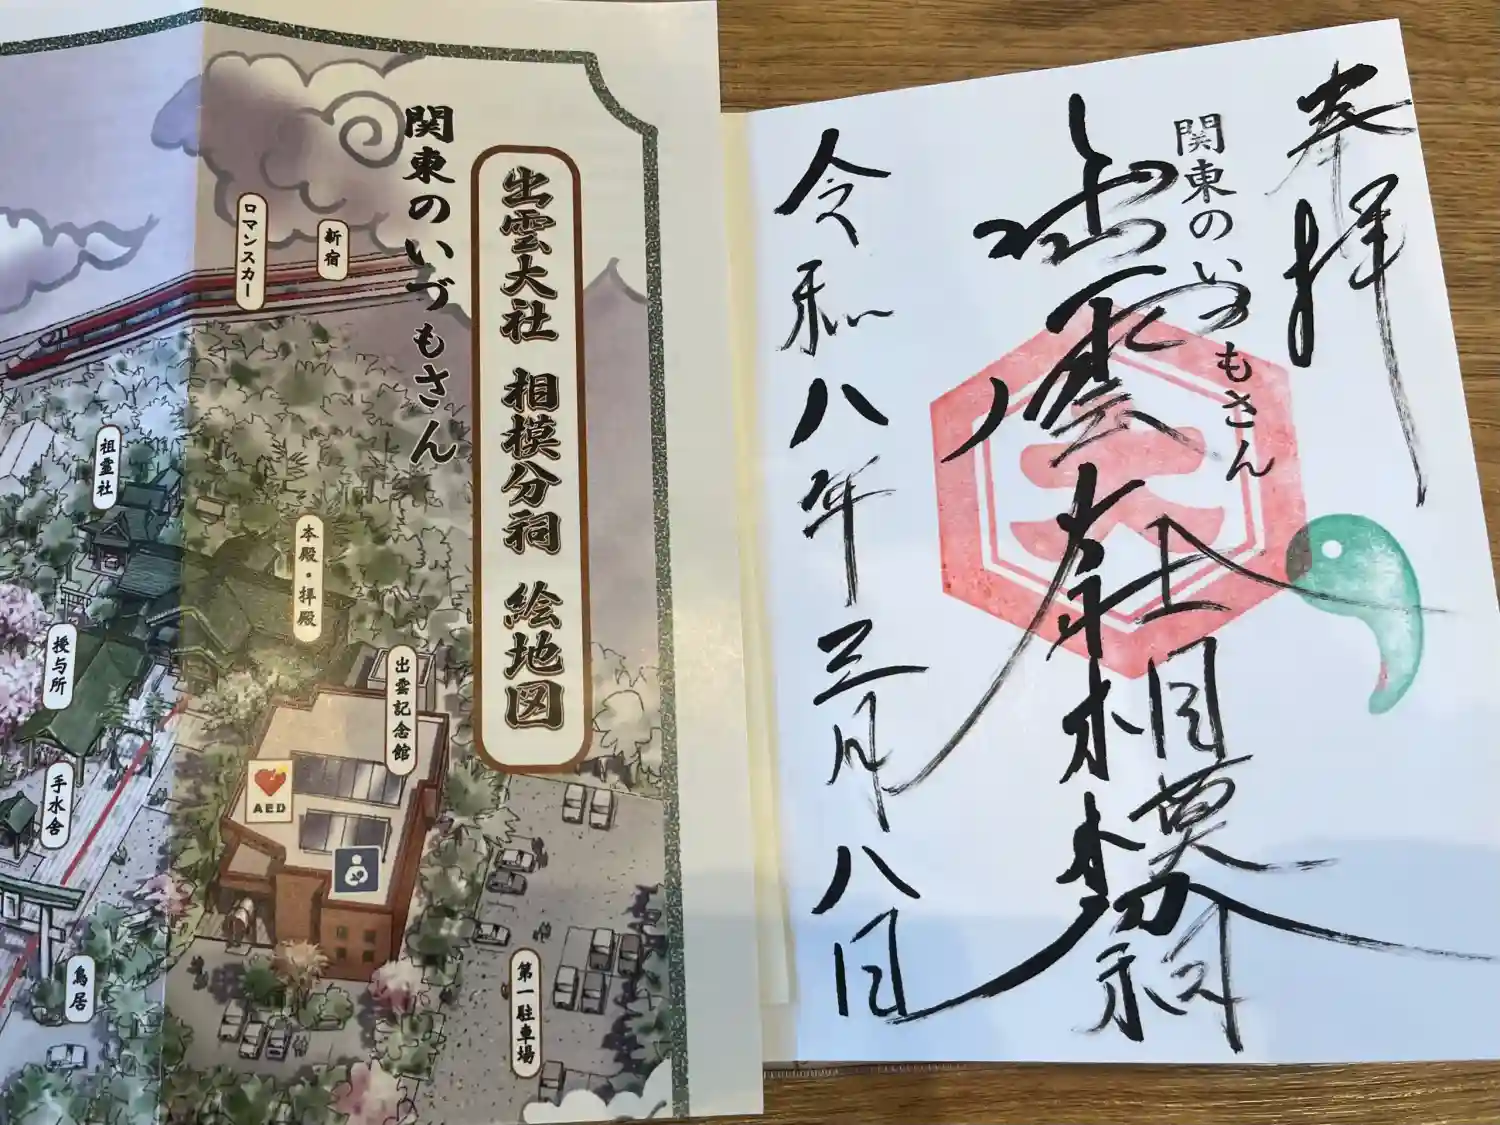 関東のいづもさん
出雲大社 相模分祠 絵地図
新宿
ロマンスカー
祖霊社
本殿・拝殿
授与所
出雲記念館
AED
手水舎
鳥居
第一駐車場
奉拝
関東のいづもさん
出雲大社相模分祠
大
令和八年三月八日